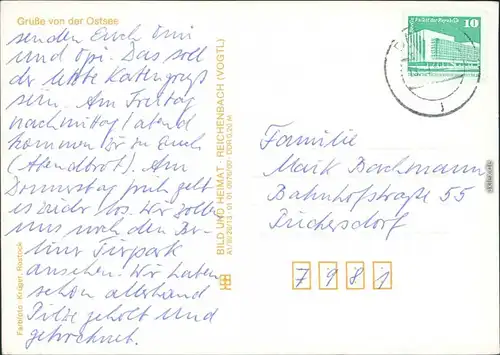 Grüße von der Ostsee
senden Euch Omi
und Opi. Das soll
der letzte Kartengruß
sein. Am Freitag
nachmittag/abend
kommen wir zu Euch
(Abendbrot). Am
Donnerstag früh geht
es zurück los. Wir wollen
uns noch den Ber-
liner Tierpark
ansehen. Wir haben
schon allerhand
Pilze geholt und
getrocknet.
Farbfoto: Krüger, Rostock
BILD UND HEIMAT · REICHENBACH (VOGTL)
Palast der Republik
10
DDR
Familie
Mark Bachmann
Bahnhofstraße 55
Tüchersdorf
7981